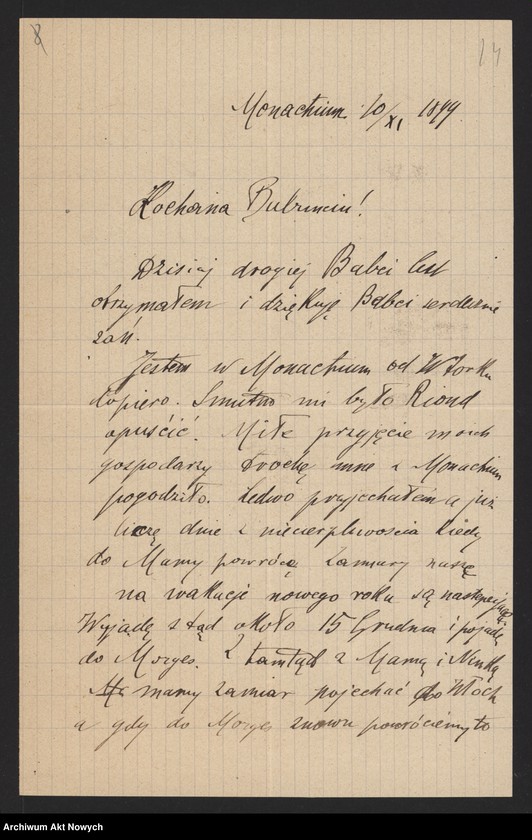 8
14
Monachium 10/XI 1899
Kochana Babuniu!
Dzisiaj drogiej Babci list
otrzymałem i dziękuję Babci serdecznie
zań.
Jestem w Monachium od Wtorku
dopiero. Smutno mi było Riond
opuścić. Miłe przyjęcie moich
gospodarzy trochę mnie z Monachium
pogodziło. Ledwo przyjechałem a już
liczę dnie z niecierpliwoscia kiedy
do Mamy powrócę. Zamiary nasze
na wakacje nowego roku są następujące
Wyjadę stąd około 15 Grudnia i pojadę
do Morges. Ztamtąd z Mamą i
mamy zamiar pojechać do Włoch
a gdy do Morges znowu powrócimy to
Archiwum Akt Nowych